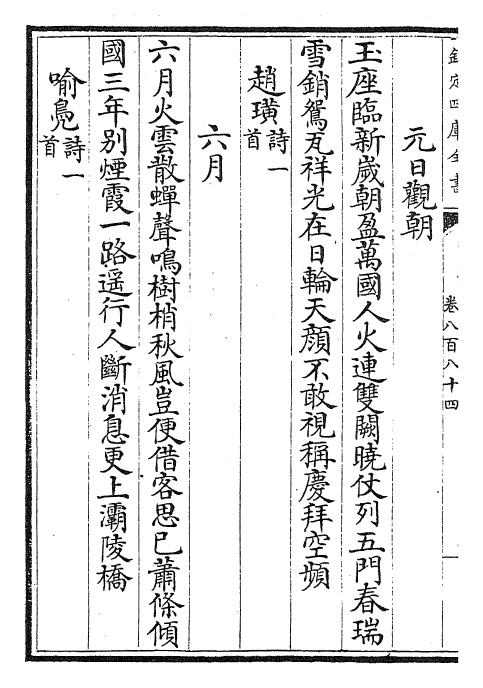 欽定四庫全書
卷八百八十四
元日觀朝
玉座臨新歲朝盈萬國人火連雙闕曉仗列五門春瑞
雪銷鴛瓦祥光在日輪天顔不敢視稱慶拜空頻
趙璜詩一首
六月
六月火雲散蟬聲鳴樹梢秋風豈便借客思已蕭條傾
國三年别煙霞一路遥行人斷消息更上灞陵橋
喻鳧詩一首